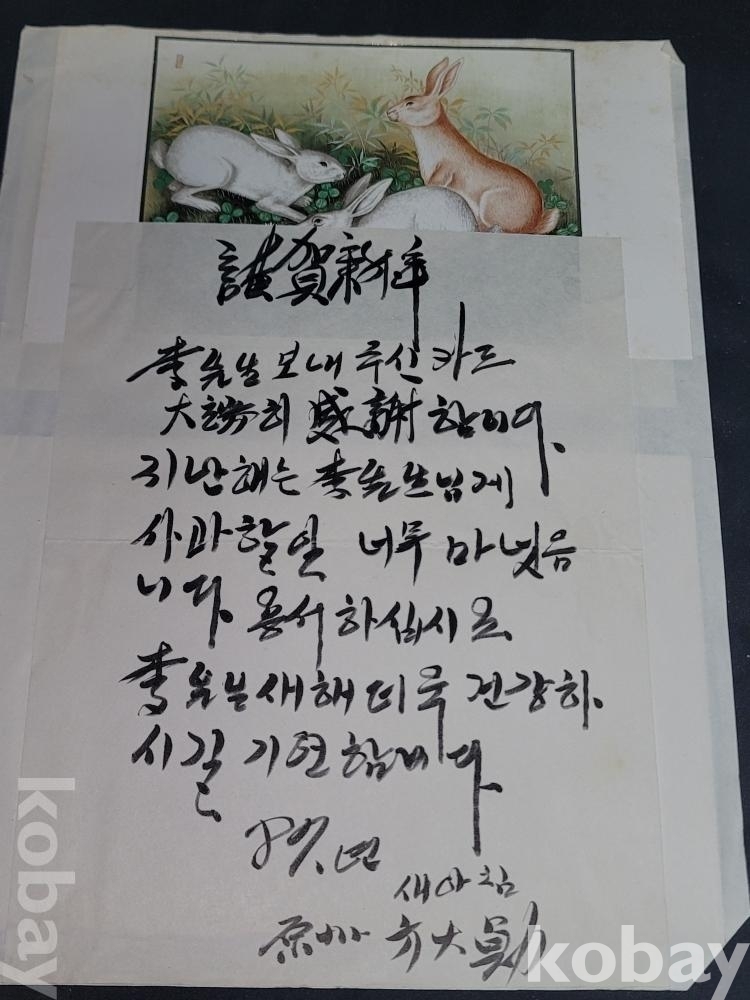 謹賀新年
李先生 보내주신 카드
大端히 感謝합니다.
지난해는 李先生님게
사과할일 너무 마넛음
니다. 용서하십시요.
李先生 새해 더욱 건강하.
시길 기원합니다.
87.년
새아침
原州 方大
kobay
kobay